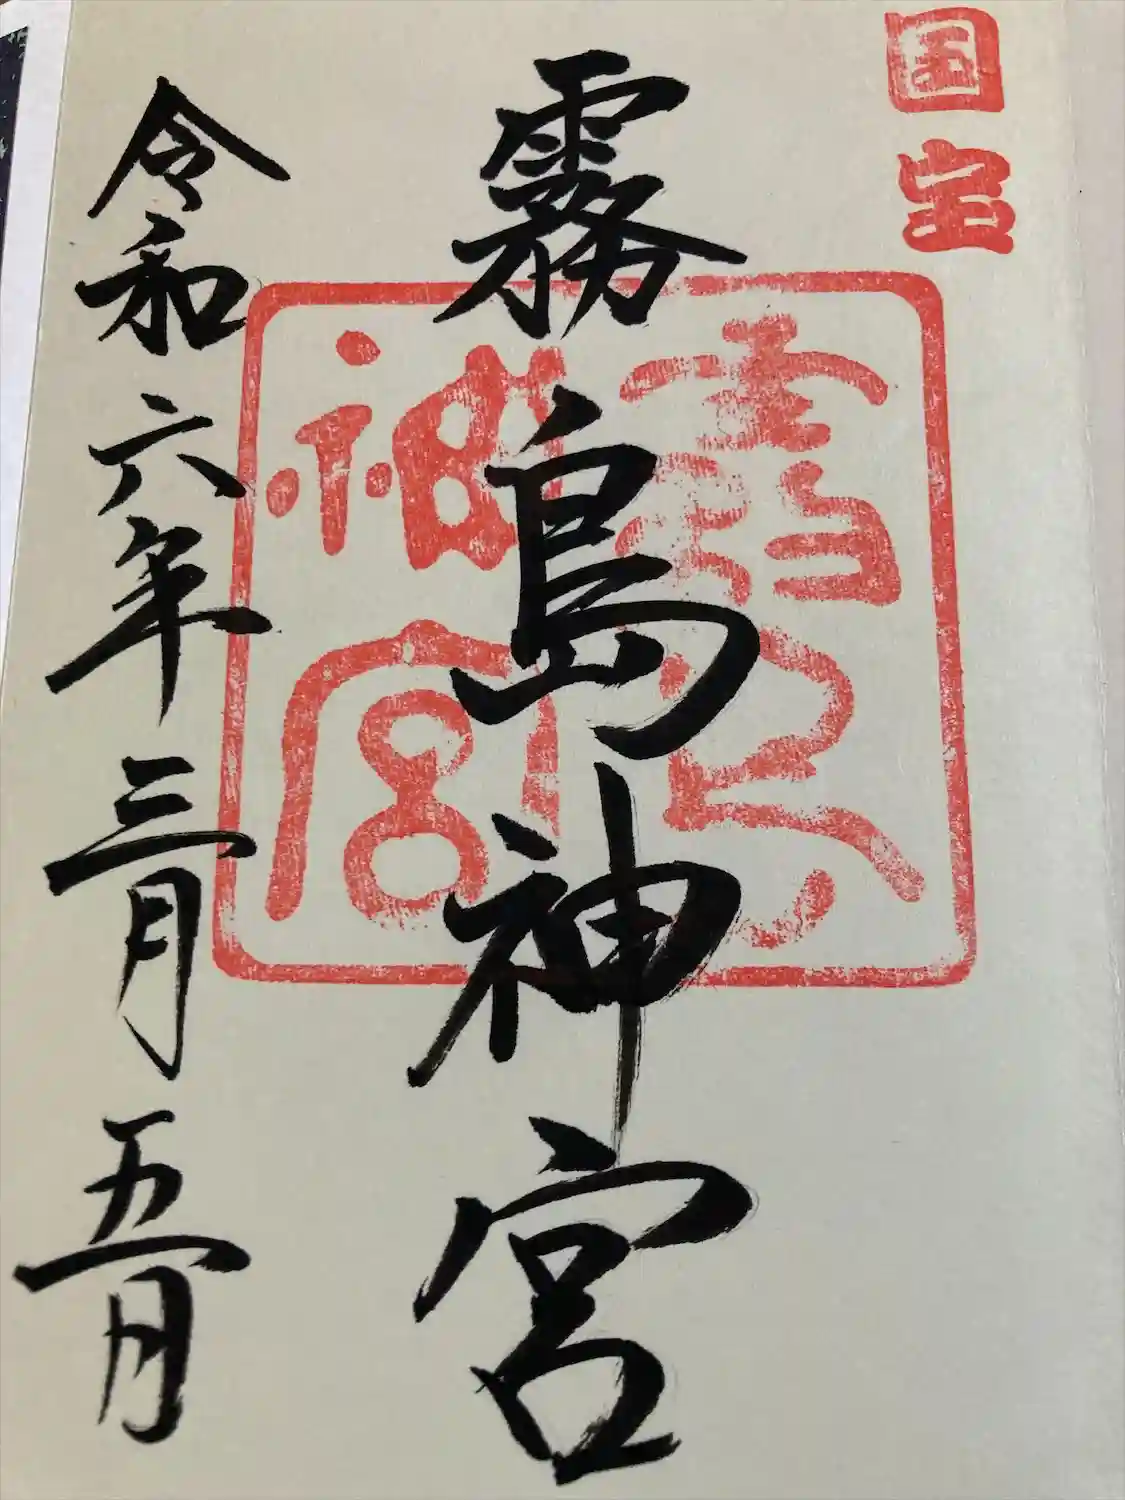 国宝
霧島神宮
霧島
神宮
令和六年三月五日